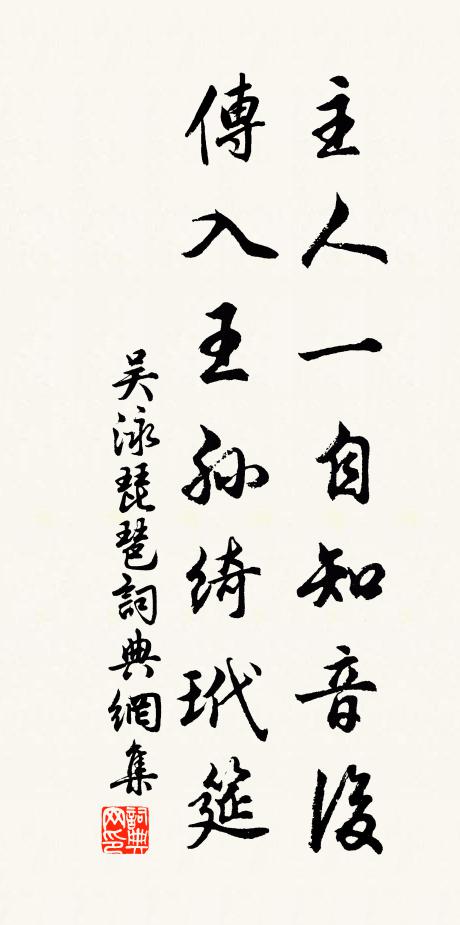 主人一自知音後
傳入王孫綺玳筵
吴泳琵琶詞典網集
詞典网印